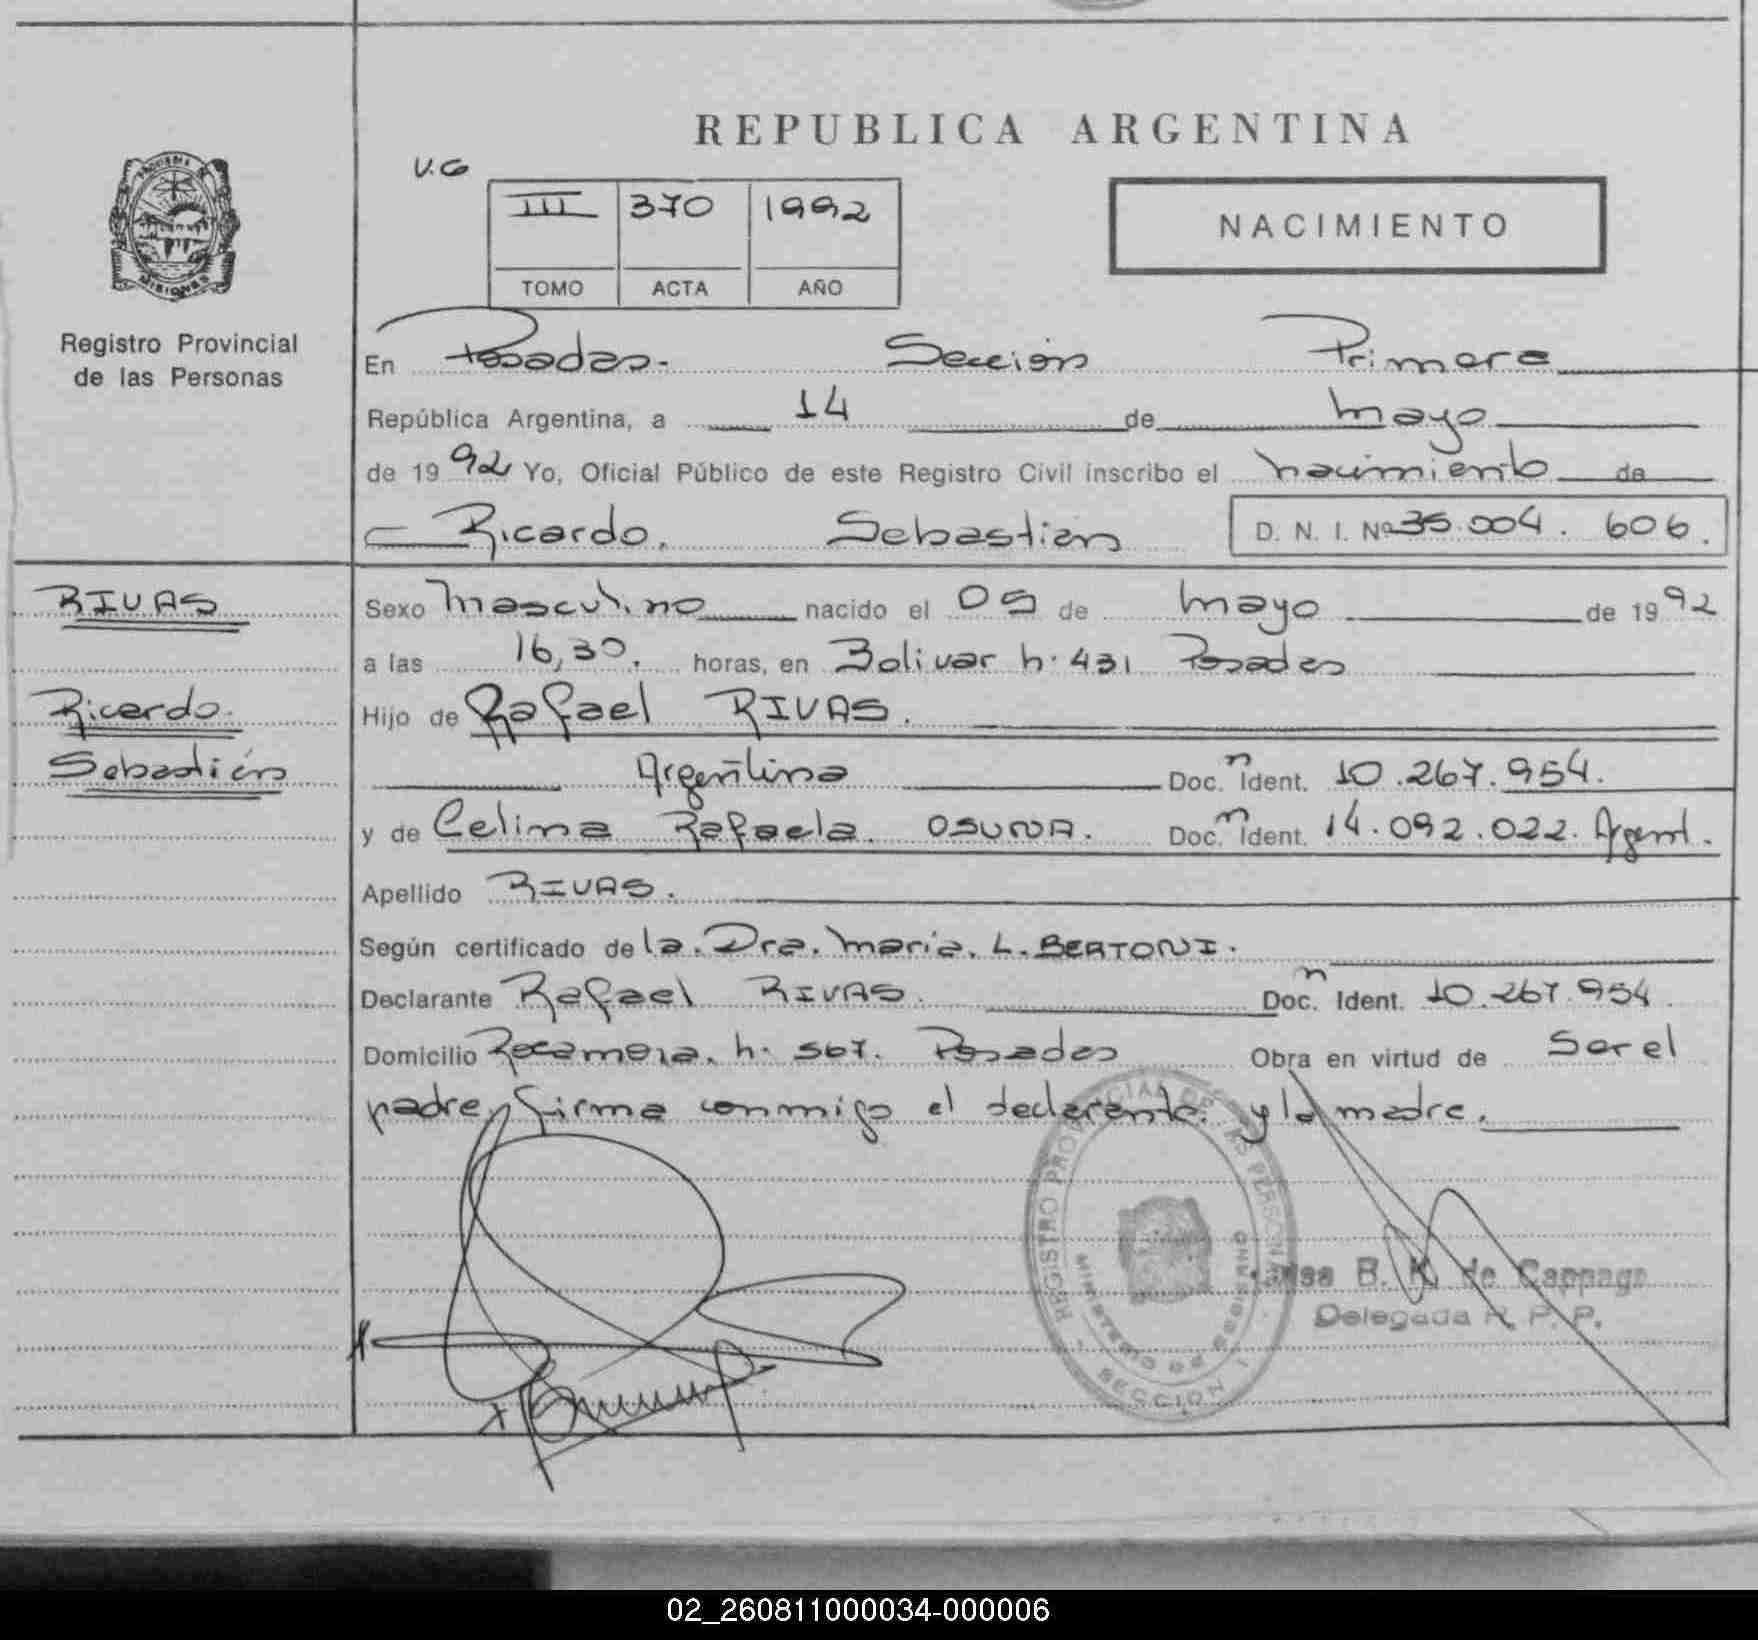 REPUBLICA ARGENTINA
V.G
III 370 1992
TOMO ACTA AÑO
NACIMIENTO
PROVINCIA DE MISIONES
Registro Provincial
de las Personas
En Posadas. Sección Primera
República Argentina, a 14 de mayo
de 1992 Yo, Oficial Público de este Registro Civil inscribo el nacimiento de
Ricardo. Sebastián D. N. I. Nº 35.004.606.
RIVAS
Ricardo.
Sebastián
Sexo masculino nacido el 05 de mayo de 1992
a las 16,30. horas, en Bolivar n. 431 Posadas
Hijo de Rafael RIVAS.
Argentino Doc. n Ident. 10.267.954.
y de Celima Rafaela. OSUNA. Doc. n Ident. 14.092.022. Argent.
Apellido RIVAS.
Según certificado de la. Dra. María. L. BERTONI.
Declarante Rafael RIVAS. Doc. n Ident. 10.267.954
Domicilio Rocamora. n. 567. Posadas Obra en virtud de Ser el
padre, firma conmigo el declarante. y la madre.
REGISTRO PROVINCIAL DE LAS PERSONAS
MINISTERIO DE GOBIERNO
SECCION
B. K. de Cappago
Delegada R. P. P.
02_260811000034-000006